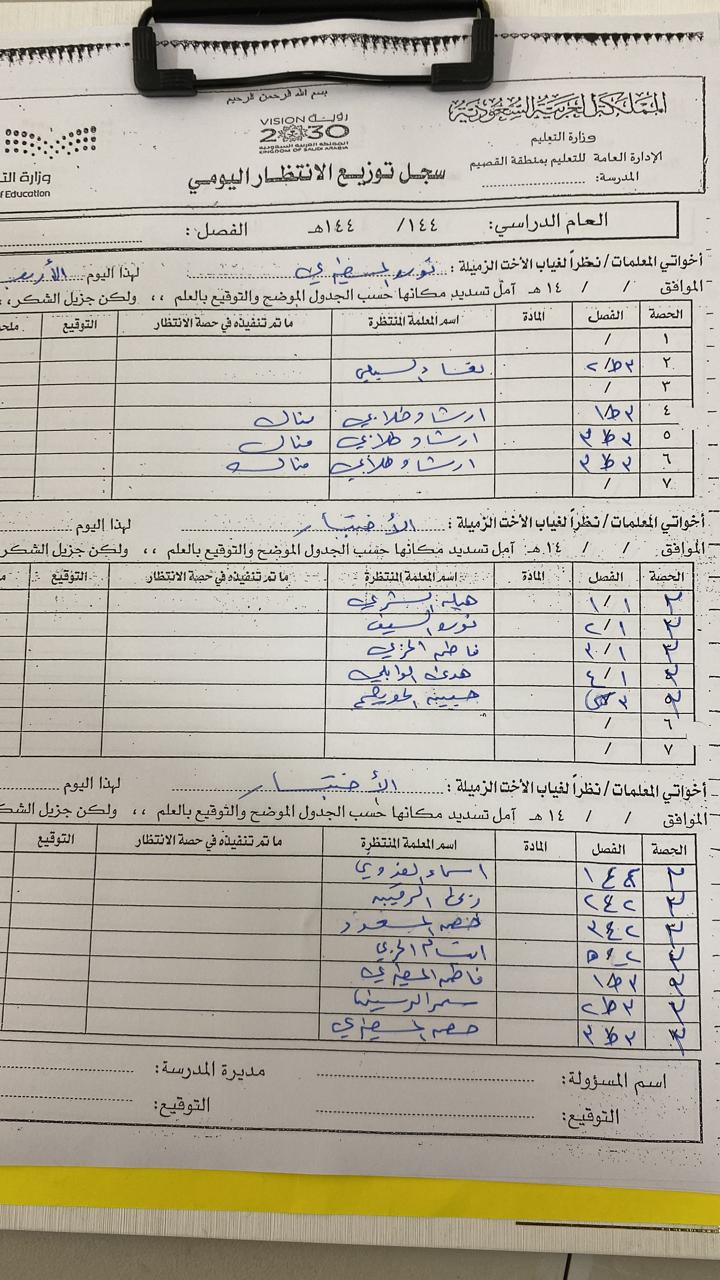 بسم الله الرحمن الرحيم
المملكة العربية السعودية
وزارة التعليم
الإدارة العامة للتعليم بمنطقة القصيم
المدرسة:
VISION رؤية
2030
المملكة العربية السعودية
KINGDOM OF SAUDI ARABIA
وزارة الت
of Education
سجل توزيع الانتظار اليومي
العام الدراسي: ١٤٤/ ١٤٤هـ الفصل:
أخواتي المعلمات/ نظراً لغياب الأخت الزميلة: نوره المطيري لهذا اليوم الأربع
الموافق / / ١٤هـ آمل تسديد مكانها حسب الجدول الموضح والتوقيع بالعلم ،، ولكن جزيل الشكر،،
الحصة الفصل المادة اسم المعلمة المنتظرة ما تم تنفيذه في حصة الانتظار التوقيع ملحو
١ /
٢ ٣ط/٢
٣ /
٤ ٣ط/١ ارشاد طلابي منال
٥ ٣ط٣ ارشاد طلابي منال
٦ ٣ط٣ ارشاد طلابي منال
٧ /
أخواتي المعلمات/ نظراً لغياب الأخت الزميلة: الأختبار لهذا اليوم
الموافق / / ١٤هـ آمل تسديد مكانها حسب الجدول الموضح والتوقيع بالعلم ،، ولكن جزيل الشكر
الحصة الفصل المادة اسم المعلمة المنتظرة ما تم تنفيذه في حصة الانتظار التوقيع
١/١ هيله
٢/١ نوره السيف
٣/١ فاطمه الحربي
٤/١ هدى الوابلي
٣
٦ /
٧ /
أخواتي المعلمات/ نظراً لغياب الأخت الزميلة: الأختبار لهذا اليوم
الموافق / / ١٤هـ آمل تسديد مكانها حسب الجدول الموضح والتوقيع بالعلم ،، ولكن جزيل الشك
الحصة الفصل المادة اسم المعلمة المنتظرة ما تم تنفيذه في حصة الانتظار التوقيع
اسماء
فاطمه المطيري
٣ط٢ سمر
٣ط٣ حصه المطيري
اسم المسؤولة: مديرة المدرسة:
التوقيع: التوقيع: